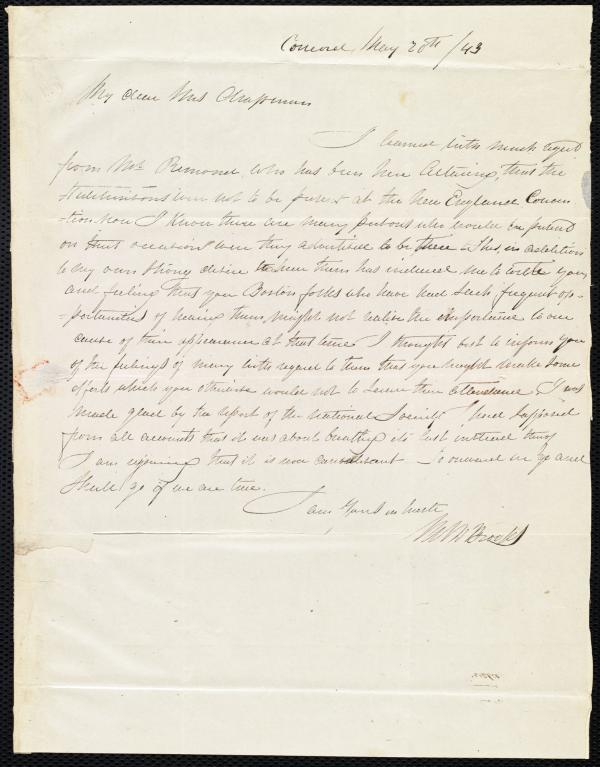 Concord, May 20th /43
My dear Mrs Chapman
I learned with much regret
from Mr. Remond, who has been here lecturing, that the
Hutchinsons were not to be present at the New England Conven
-tion. Now I know there are many persons who would be present
on that occasion were they advertised to be there. This, in addition
to my own strong desire to hear them has induced me to write you
and feeling that you Boston folks who have had such frequent op-
-portunities of hearing them, might not realise the importance to our
cause of their appearance at that time I thought best to inform you
of the feelings of many with regard to them that you might make some
efforts which you otherwise would not to secure their attendance. I was
made glad by the report of the National Society. I had supposed
from all accounts that it was about breathing its last instead thereof
I am rejoicing that it is now So onward we go and
shall go if we are true.
I am yours in haste
M M Brooks